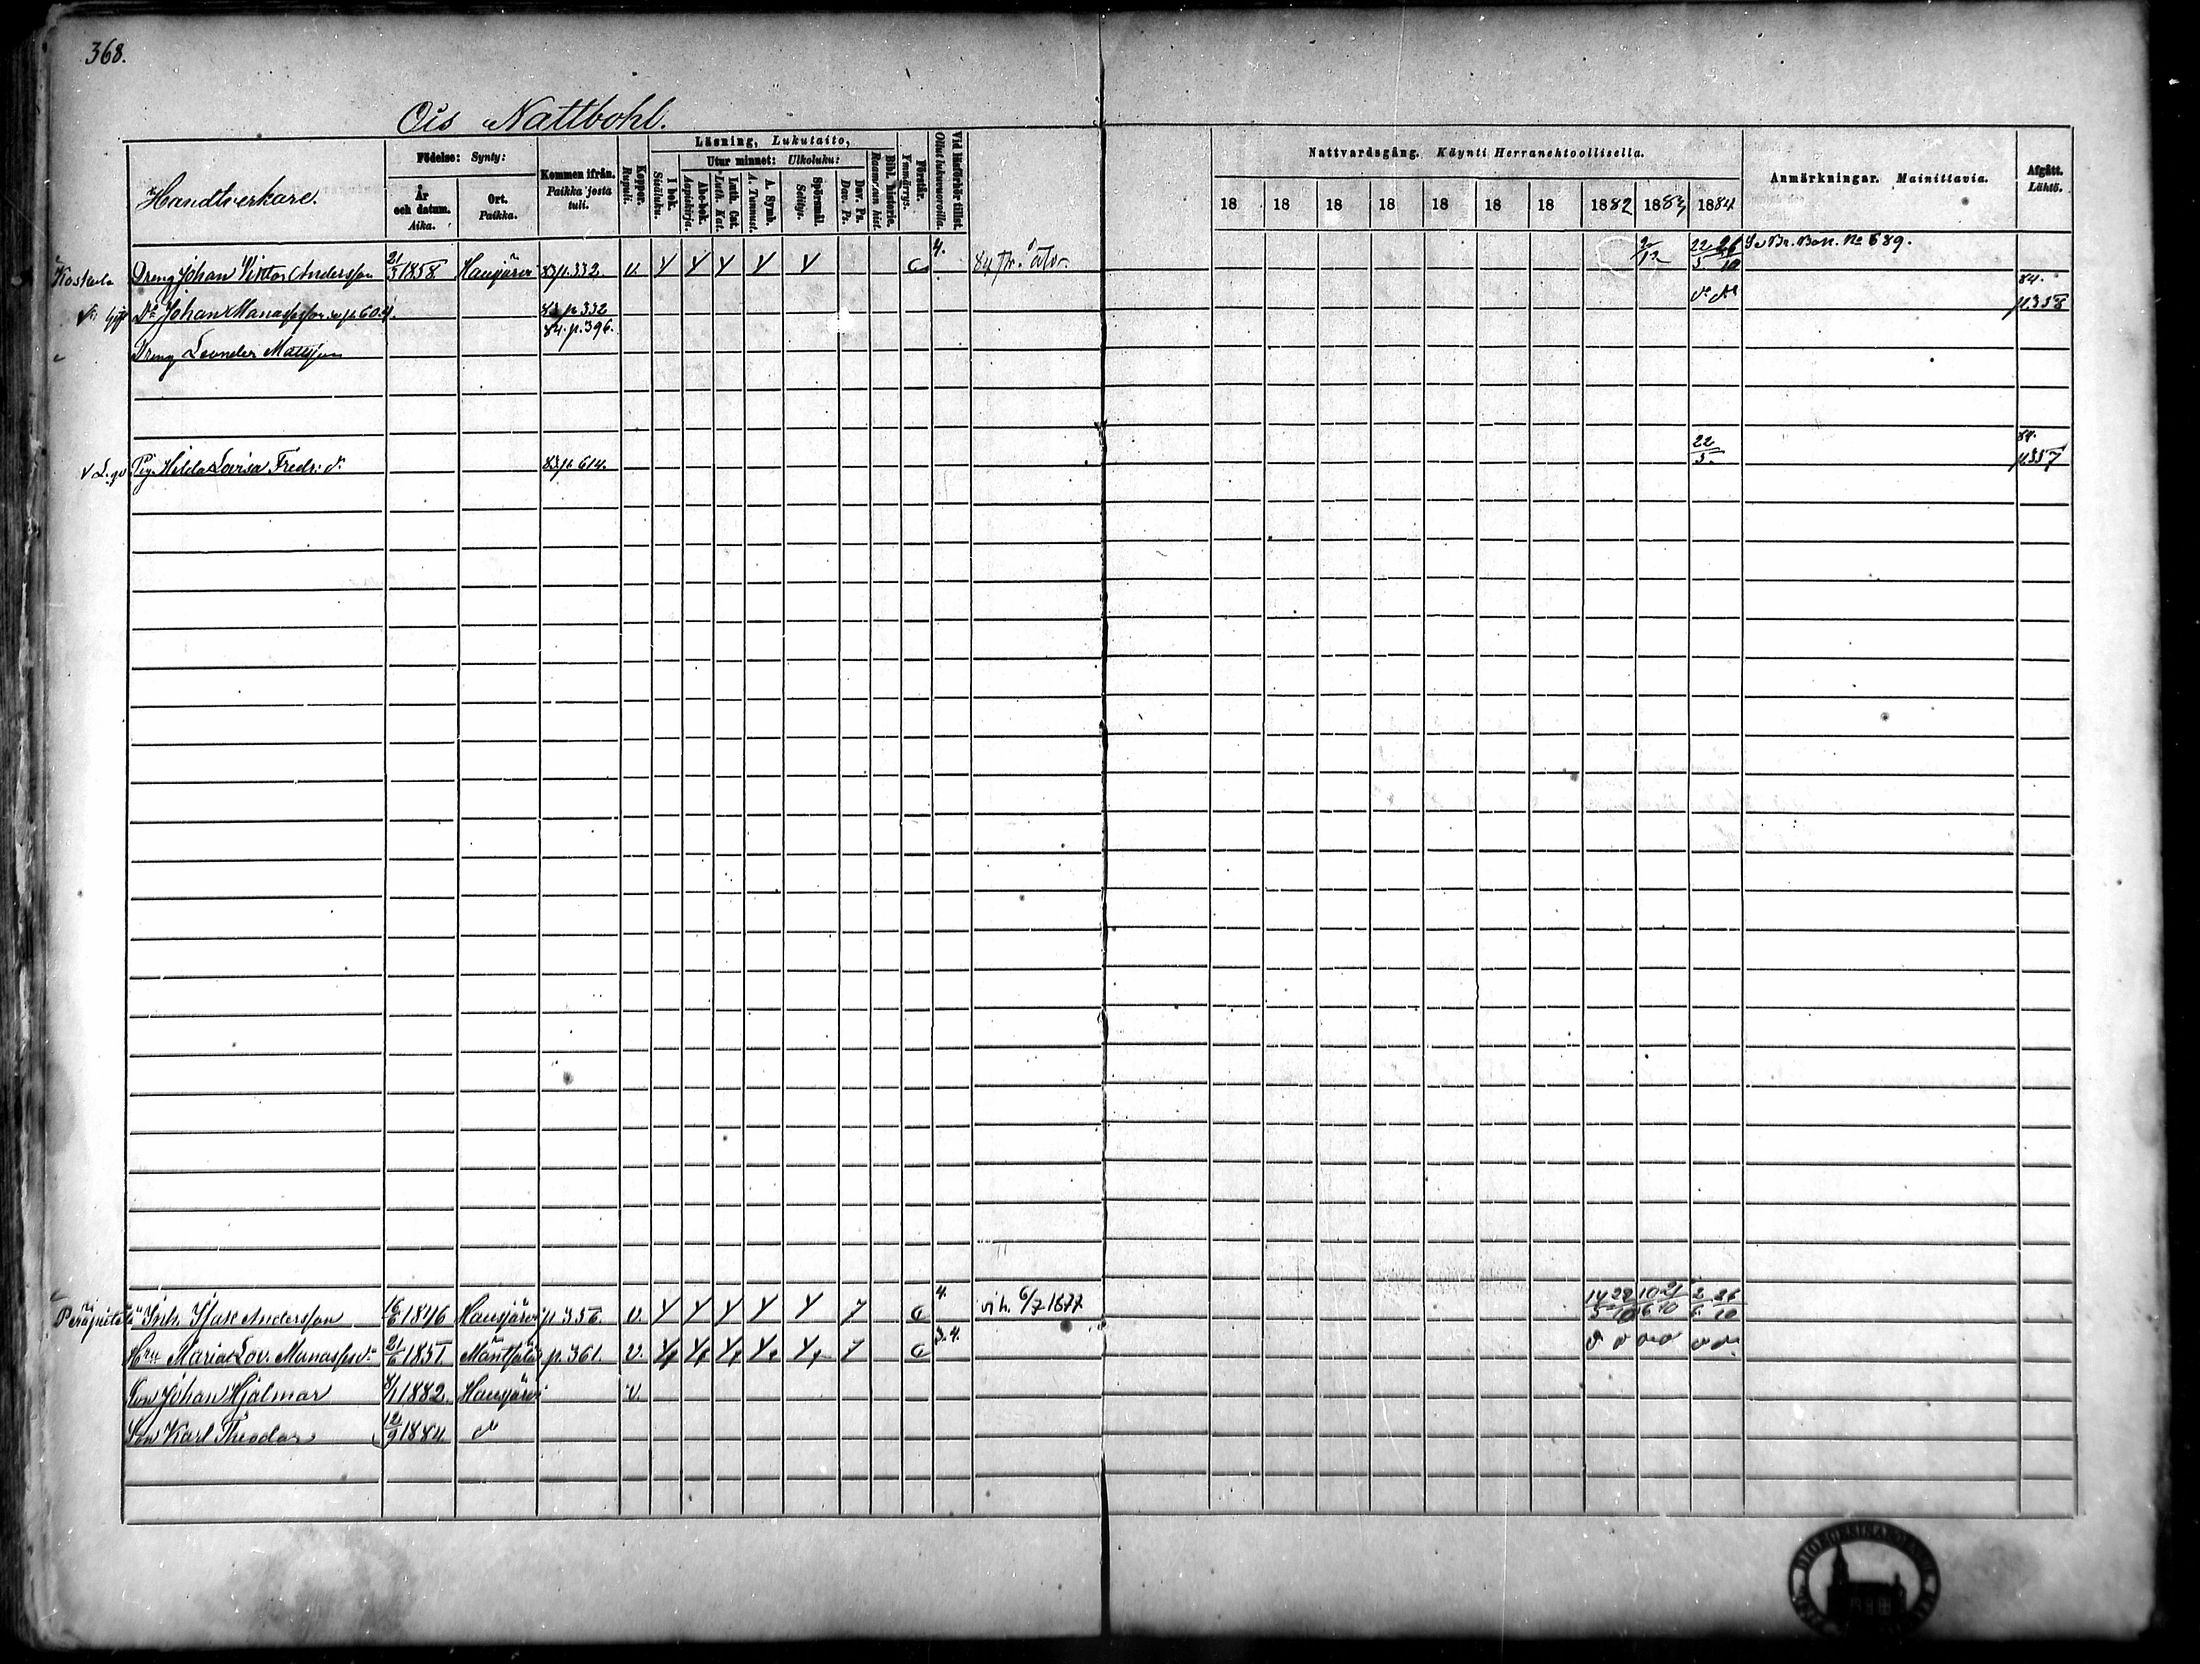 368.
Ois Nattbohl.
Handtverkare.
Födelse: Synty:
År och datum. Aika.
Ort. Paikka.
Kommen ifrån. Paikka josta tuli.
Koppor. Rupuli.
Läsning, Lukutaito,
I bok. Sisäluku.
Utur minnet: Ulkoluku:
Abc-bok. Aapiskirja.
Luth. Cat. Luth. Kat.
A. Symb. A. Tunnust.
Spörsmål. Selitys.
Dav. Ps. Dav. Ps.
Bibl. historie. Raamatun hist.
Förstår. Ymmärrys.
Vid läsförhör tillst. Ollut lukuvuorolla.
Nattvardsgång. Käynti Herranehtoollisella.
18 18 18 18 18 18 18 1882 1883 1884
Anmärkningar. Mainittavia.
Afgått. Lähtö.
Koskela Dreng Johan Viktor Andersson 21/3 1858 Hausjärvi 83 p. 332. v. 4. 2/12 22/5 26/10 Se Br. Bok. No 689.
Do Johan Manasson p. 604. 83 p. 332 84. p. 358
84. p. 396.
Dreng Leander Mattsson
Pig. Hilda Lovisa Fredr: d. 83 p. 614. 22/5. 84. p. 357
Inh. Isak Andersson 16/6 1846 Hausjärvi p. 356. v. 7 4. vih. 6/7 1877 14/5 22/10 10/6 21/10 2/6. 26/10
Hru Maria Lov. Manassesd. 21/6 1851 Mäntsälä p. 361. v. 7 3. 4.
Son Johan Hjalmar 8/1 1882. Hausjärvi v.
Son Karl Theodor 12/9 1884 do